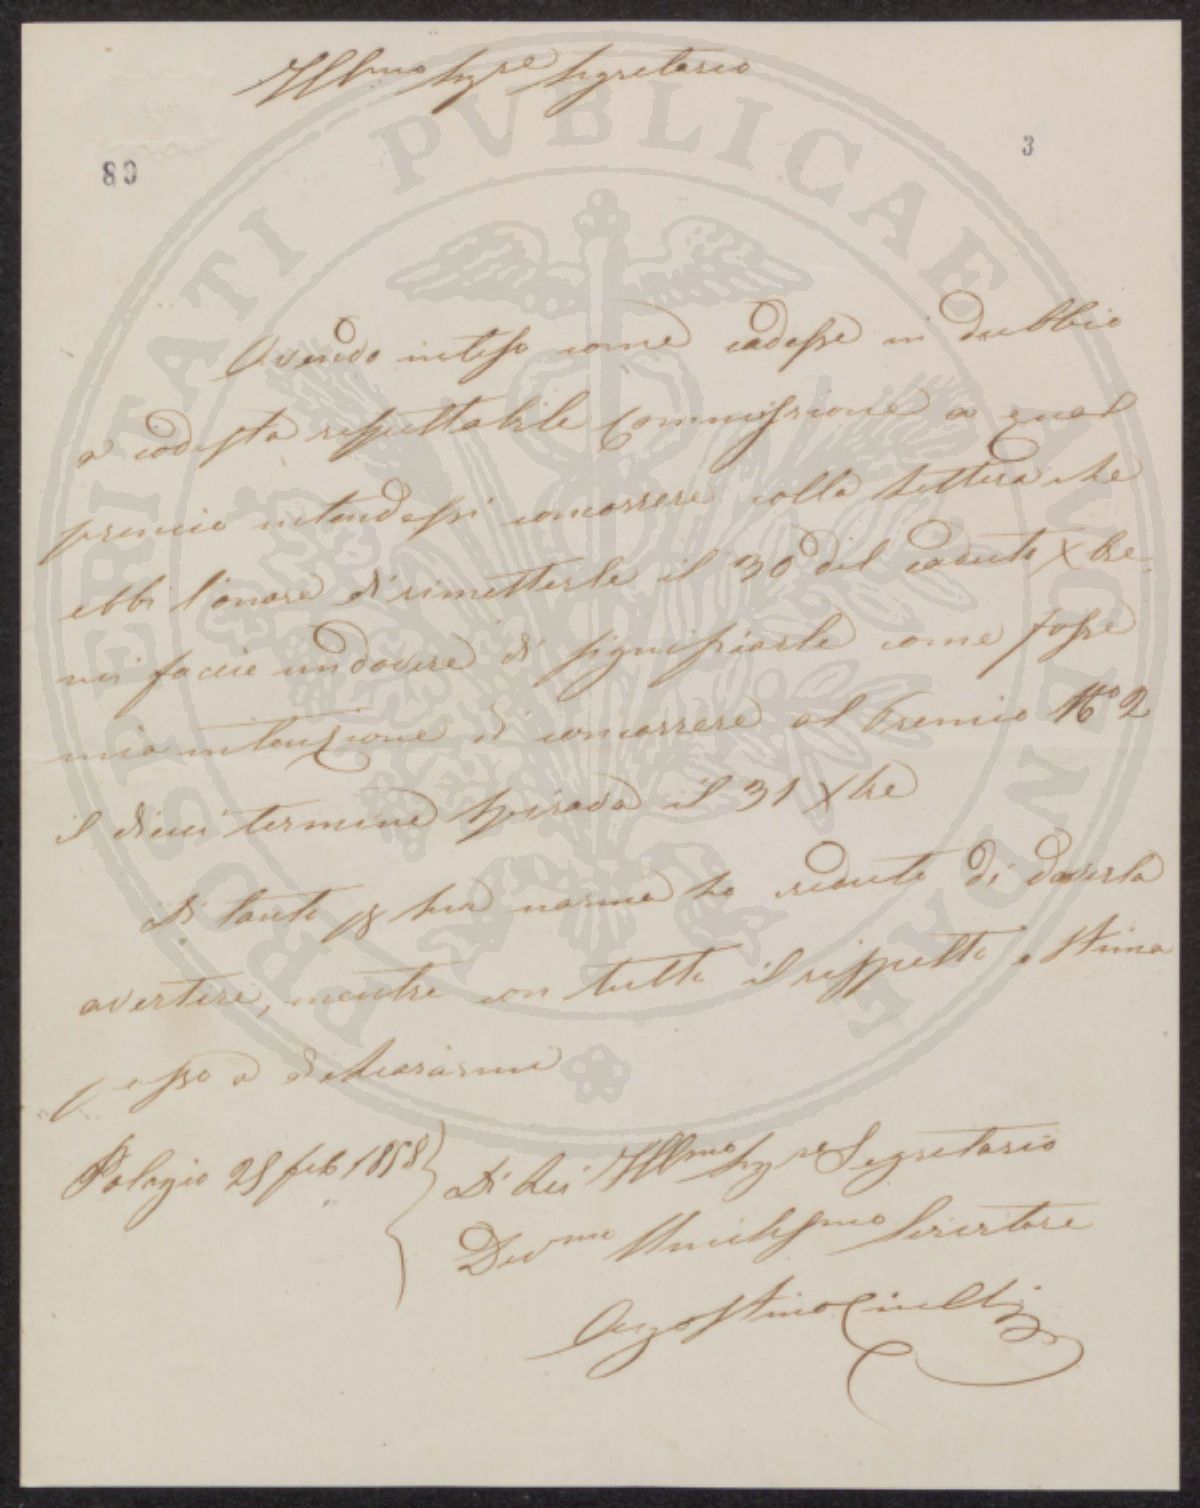 Ill.mo Sig.re Segretario
80
3
Avendo inteso come cadesse in dubbio
a codesta rispettabile Commissione a qual
premio intendessi concorrere colla lettera che
ebbi l'onore di rimetterle il 30 del caduto Xbre
mi faccio un dovere di significarle come fosse
mia intenzione di concorrere al Premio N.o 2
il di cui termine spirava il 31 Xbre
Di tanto per sua norma ho creduto di doverla
avertire, mentre con tutto il rispetto e stima
passo a dichiararmi
Palagio 25 feb 1858
Di Lei Ill.mo Sig.re Segretario
Dev.mo Umiliss.mo Servitore
Agostino
PROSPERITATI PVBLICAE AVGENDAE